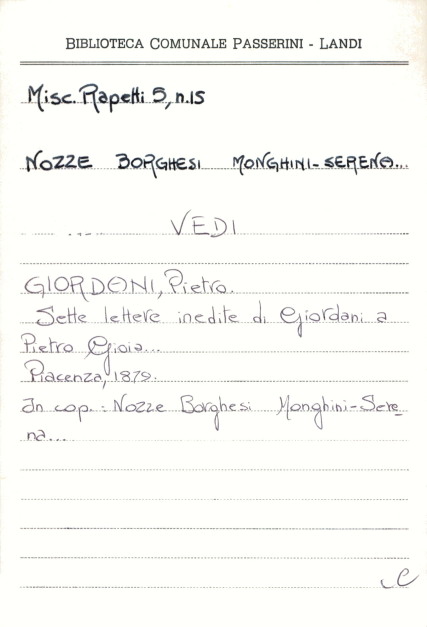 BIBLIOTECA COMUNALE PASSERINI - LANDI
Misc. Rapetti 5, n.15
NOZZE BORGHESI MONGHINI-SERENA...
VEDI
GIORDONI, Pietro.
Sette lettere inedite di Giordani a
Pietro Gioia...
Piacenza, 1879.
In cop.: Nozze Borghesi Monghini-Sere
na...